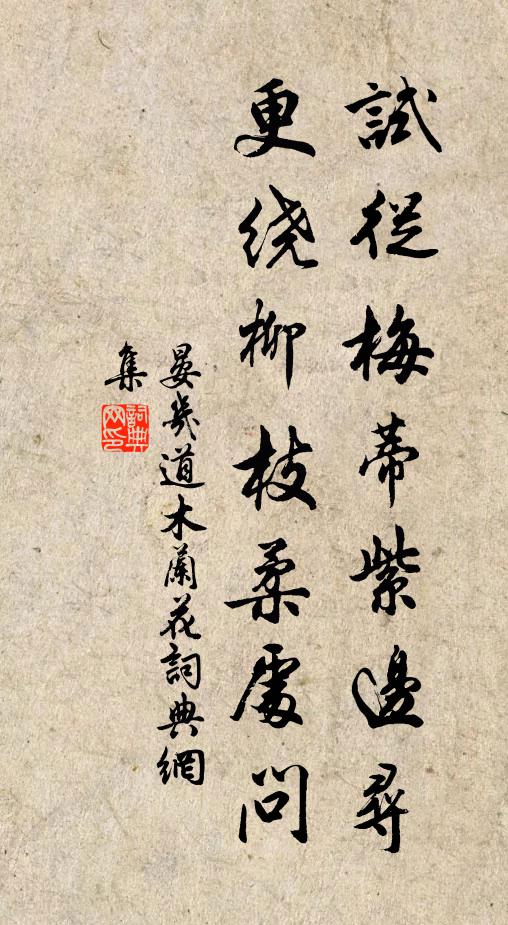 試從梅蒂紫邊尋
更绕柳枝柔處問
晏幾道木蘭花詞典網
集
詞典
网印